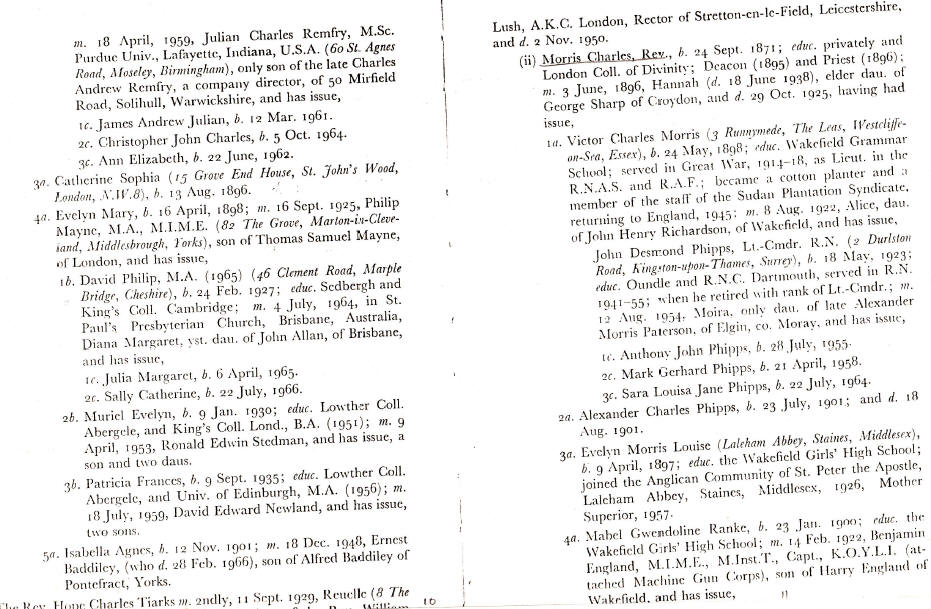 m. 18 April, 1959, Julian Charles Remfry, M.Sc.
Purdue Univ., Lafayette, Indiana, U.S.A. (60 St. Agnes
Road, Moseley, Birmingham), only son of the late Charles
Andrew Remfry, a company director, of 50 Mirfield
Road, Solihull, Warwickshire, and has issue,
1c. James Andrew Julian, b. 12 Mar. 1961.
2c. Christopher John Charles, b. 5 Oct. 1964.
3c. Ann Elizabeth, b. 22 June, 1962.
3a. Catherine Sophia (15 Grove End House, St. John's Wood,
London, N.W.8), b. 13 Aug. 1896.
4a. Evelyn Mary, b. 16 April, 1898; m. 16 Sept. 1925, Philip
Mayne, M.A., M.I.M.E. (82 The Grove, Marton-in-Cleve-
land, Middlesbrough, Yorks), son of Thomas Samuel Mayne,
of London, and has issue,
1b. David Philip, M.A. (1965) (46 Clement Road, Marple
Bridge, Cheshire), b. 24 Feb. 1927; educ. Sedbergh and
King's Coll. Cambridge; m. 4 July, 1964, in St.
Paul's Presbyterian Church, Brisbane, Australia,
Diana Margaret, yst. dau. of John Allan, of Brisbane,
and has issue,
1c. Julia Margaret, b. 6 April, 1965.
2c. Sally Catherine, b. 22 July, 1966.
2b. Muriel Evelyn, b. 9 Jan. 1930; educ. Lowther Coll.
Abergele, and King's Coll. Lond., B.A. (1951); m. 9
April, 1953, Ronald Edwin Stedman, and has issue, a
son and two daus.
3b. Patricia Frances, b. 9 Sept. 1935; educ. Lowther Coll.
Abergele, and Univ. of Edinburgh, M.A. (1956); m.
18 July, 1959, David Edward Newland, and has issue,
two sons.
5a. Isabella Agnes, b. 12 Nov. 1901; m. 18 Dec. 1948, Ernest
Baddiley, (who d. 28 Feb. 1966), son of Alfred Baddiley of
Pontefract, Yorks.
The Rev. Hope Charles Tiarks m. 2ndly, 11 Sept. 1929, Reuelle (8 The
10
Lush, A.K.C. London, Rector of Stretton-en-le-Field, Leicestershire,
and d. 2 Nov. 1950.
(ii) Morris Charles, Rev., b. 24 Sept. 1871; educ. privately and
London Coll. of Divinity; Deacon (1895) and Priest (1896);
m. 3 June, 1896, Hannah (d. 18 June 1938), elder dau. of
George Sharp of Croydon, and d. 29 Oct. 1925, having had
issue,
1a. Victor Charles Morris (3 Runnymede, The Leas, Westcliffe-
on-Sea, Essex), b. 24 May, 1898; educ. Wakefield Grammar
School; served in Great War, 1914-18, as Lieut. in the
R.N.A.S. and R.A.F.; became a cotton planter and a
member of the staff of the Sudan Plantation Syndicate,
returning to England, 1945; m. 8 Aug. 1922, Alice, dau.
of John Henry Richardson, of Wakefield, and has issue,
John Desmond Phipps, Lt.-Cmdr. R.N. (2 Durlston
Road, Kingston-upon-Thames, Surrey), b. 18 May, 1923;
educ. Oundle and R.N.C. Dartmouth, served in R.N.
1941-55; when he retired with rank of Lt.-Cmdr.; m.
12 Aug. 1954, Moira, only dau. of late Alexander
Morris Paterson, of Elgin, co. Moray, and has issue,
1c. Anthony John Phipps, b. 28 July, 1955.
2c. Mark Gerhard Phipps, b. 21 April, 1958.
3c. Sara Louisa Jane Phipps, b. 22 July, 1964.
2a. Alexander Charles Phipps, b. 23 July, 1901; and d. 18
Aug. 1901.
3a. Evelyn Morris Louise (Laleham Abbey, Staines, Middlesex),
b. 9 April, 1897; educ. the Wakefield Girls' High School;
joined the Anglican Community of St. Peter the Apostle,
Laleham Abbey, Staines, Middlesex, 1926, Mother
Superior, 1957.
4a. Mabel Gwendoline Ranke, b. 23 Jan. 1900; educ. the
Wakefield Girls' High School; m. 14 Feb. 1922, Benjamin
England, M.I.M.E., M.Inst.T., Capt., K.O.Y.L.I. (at-
tached Machine Gun Corps), son of Harry England of
Wakefield, and has issue,
11